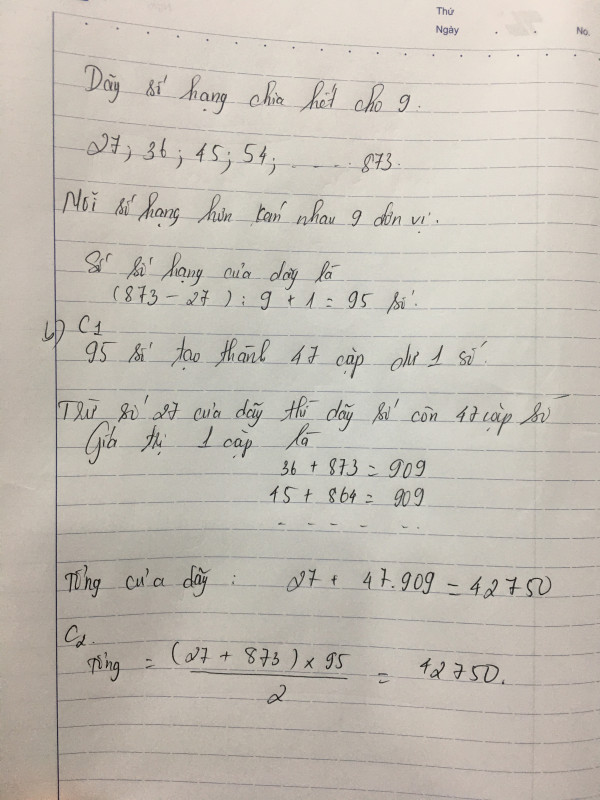 Thứ
Ngày
No.
Dãy số hạng chia hết cho 9.
27; 36; 45; 54; ..... 873.
Mỗi số hạng hơn kém nhau 9 đơn vị.
Số số hạng của dãy là
(873 - 27) : 9 + 1 = 95 số.
b) C1
95 số tạo thành 47 cặp dư 1 số.
Trừ số 27 của dãy thì dãy số còn 47 cặp số
Giá trị 1 cặp là
36 + 873 = 909
45 + 864 = 909
- - - - - -
Tổng của dãy: 27 + 47.909 = 42750
C2.
Tổng = (27 + 873) x 95 = 42750.
2